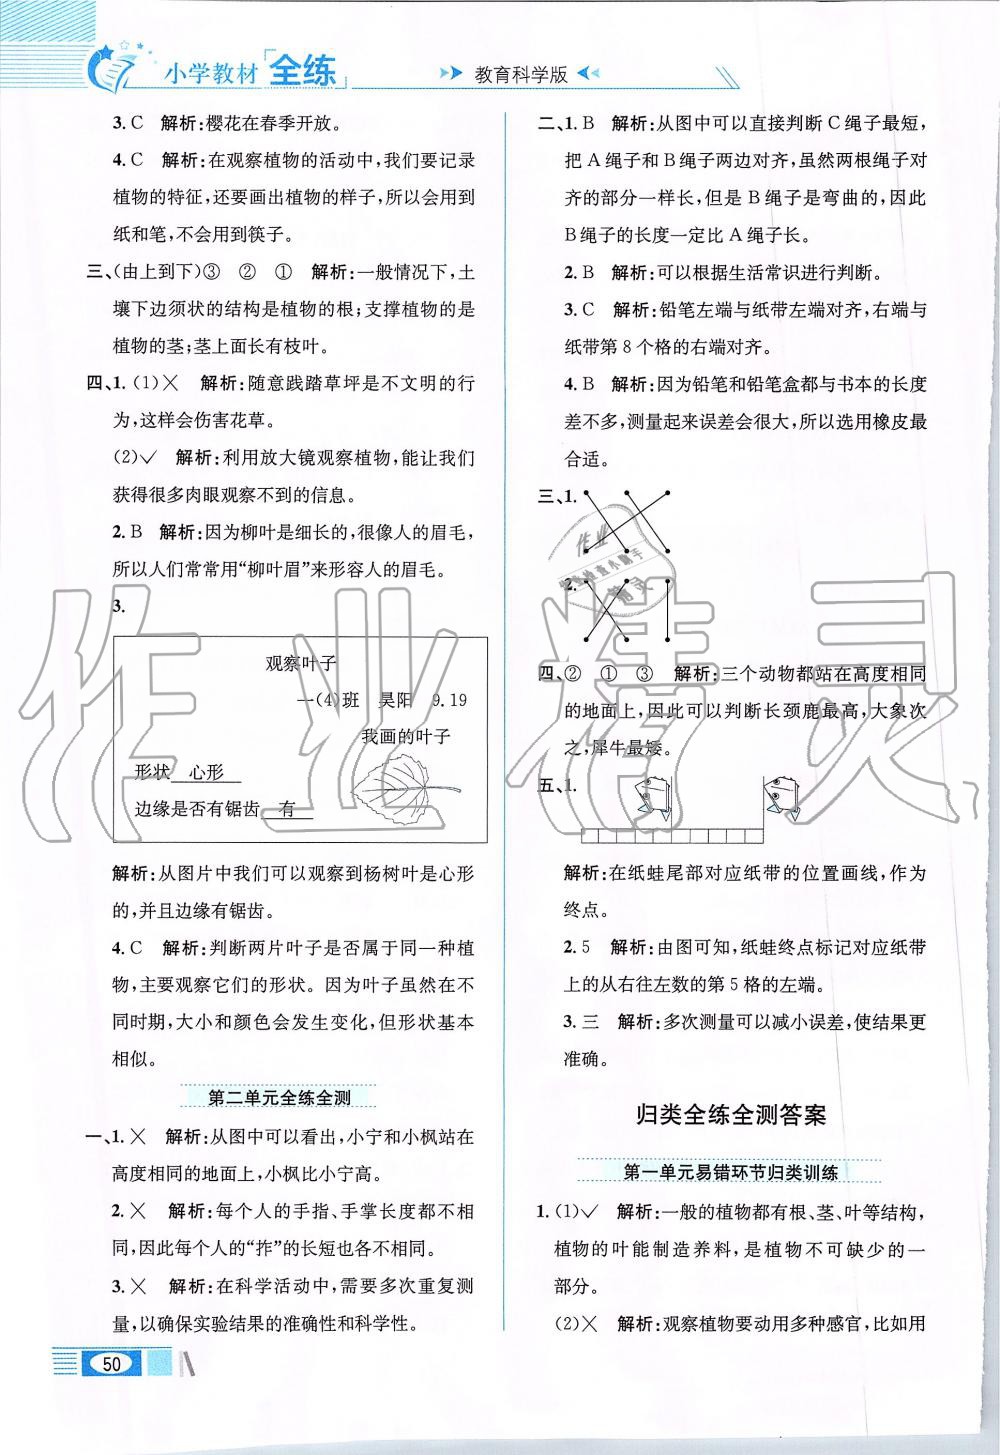 小学教材 全练 教育科学版
3. C 解析:樱花在春季开放。
4. C 解析:在观察植物的活动中,我们要记录
植物的特征,还要画出植物的样子,所以会用到
纸和笔,不会用到筷子。
三、(由上到下)③ ② ① 解析:一般情况下,土
壤下边须状的结构是植物的根;支撑植物的是
植物的茎;茎上面长有枝叶。
四、1. (1)✕ 解析:随意践踏草坪是不文明的行
为,这样会伤害花草。
(2)✓ 解析:利用放大镜观察植物,能让我们
获得很多肉眼观察不到的信息。
2. B 解析:因为柳叶是细长的,很像人的眉毛,
所以人们常常用“柳叶眉”来形容人的眉毛。
3.
观察叶子
一(4)班 吴阳 9.19
我画的叶子
形状 心形
边缘是否有锯齿 有
解析:从图片中我们可以观察到杨树叶是心形
的,并且边缘有锯齿。
4. C 解析:判断两片叶子是否属于同一种植
物,主要观察它们的形状。因为叶子虽然在不
同时期,大小和颜色会发生变化,但形状基本
相似。
第二单元全练全测
一、1. ✕ 解析:从图中可以看出,小宁和小枫站在
高度相同的地面上,小枫比小宁高。
2. ✕ 解析:每个人的手指、手掌长度都不相
同,因此每个人的“拃”的长短也各不相同。
3. ✕ 解析:在科学活动中,需要多次重复测
量,以确保实验结果的准确性和科学性。
50
二、1. B 解析:从图中可以直接判断C绳子最短,
把A绳子和B绳子两边对齐,虽然两根绳子对
齐的部分一样长,但是B绳子是弯曲的,因此
B绳子的长度一定比A绳子长。
2. B 解析:可以根据生活常识进行判断。
3. C 解析:铅笔左端与纸带左端对齐,右端与
纸带第8个格的右端对齐。
4. B 解析:因为铅笔和铅笔盒都与书本的长度
差不多,测量起来误差会很大,所以选用橡皮最
合适。
三、1.
2.
四、② ① ③ 解析:三个动物都站在高度相同
的地面上,因此可以判断长颈鹿最高,大象次
之,犀牛最矮。
五、1.
解析:在纸蛙尾部对应纸带的位置画线,作为
终点。
2. 5 解析:由图可知,纸蛙终点标记对应纸带
上的从右往左数的第5格的左端。
3. 三 解析:多次测量可以减小误差,使结果更
准确。
归类全练全测答案
第一单元易错环节归类训练
1. (1)✓ 解析:一般的植物都有根、茎、叶等结构,
植物的叶能制造养料,是植物不可缺少的一
部分。
(2)✕ 解析:观察植物要动用多种感官,比如用
作业精灵